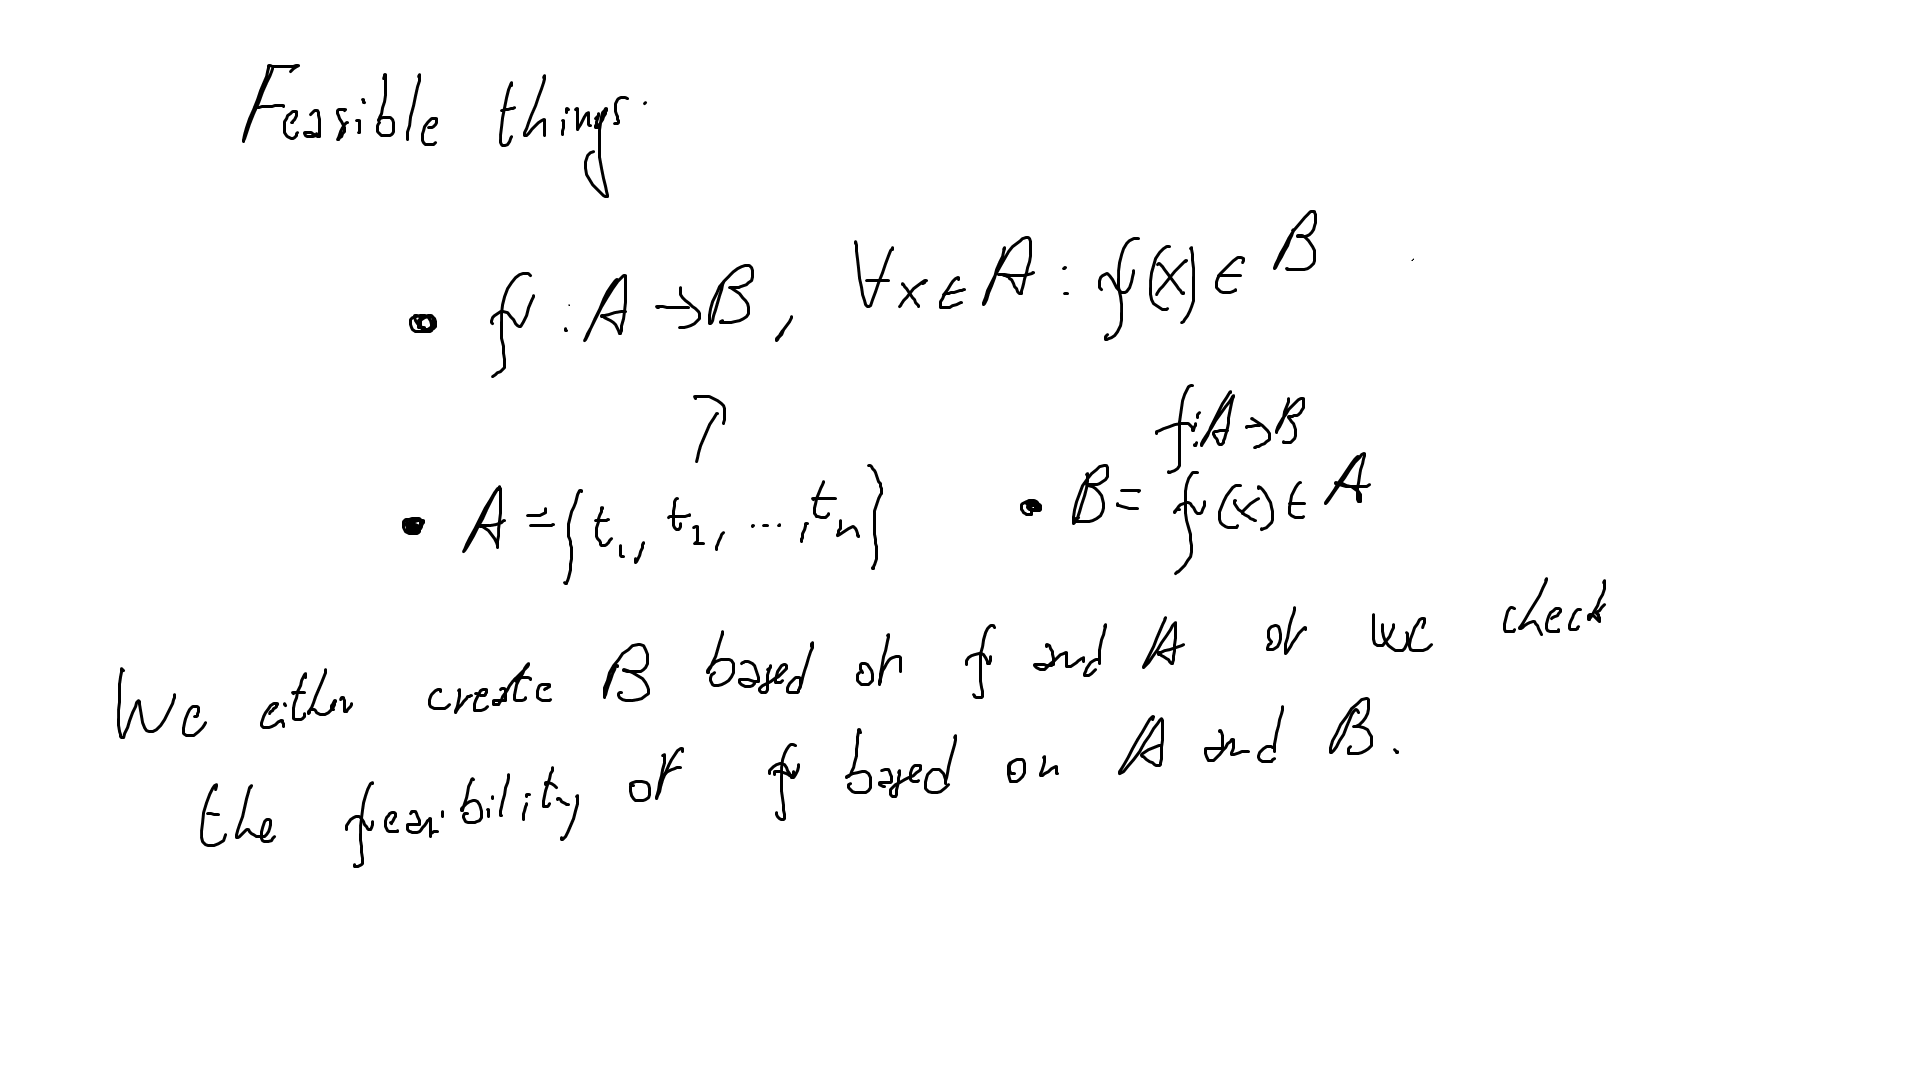 Feasible things:
• f : A → B, ∀x ∈ A : f(x) ∈ B
↗
f: A → B
• A = {t₁, t₂, ..., tₙ} • B = f(x) ∈ A
We either create B based on f and A or we check
the feasibility of f based on A and B.